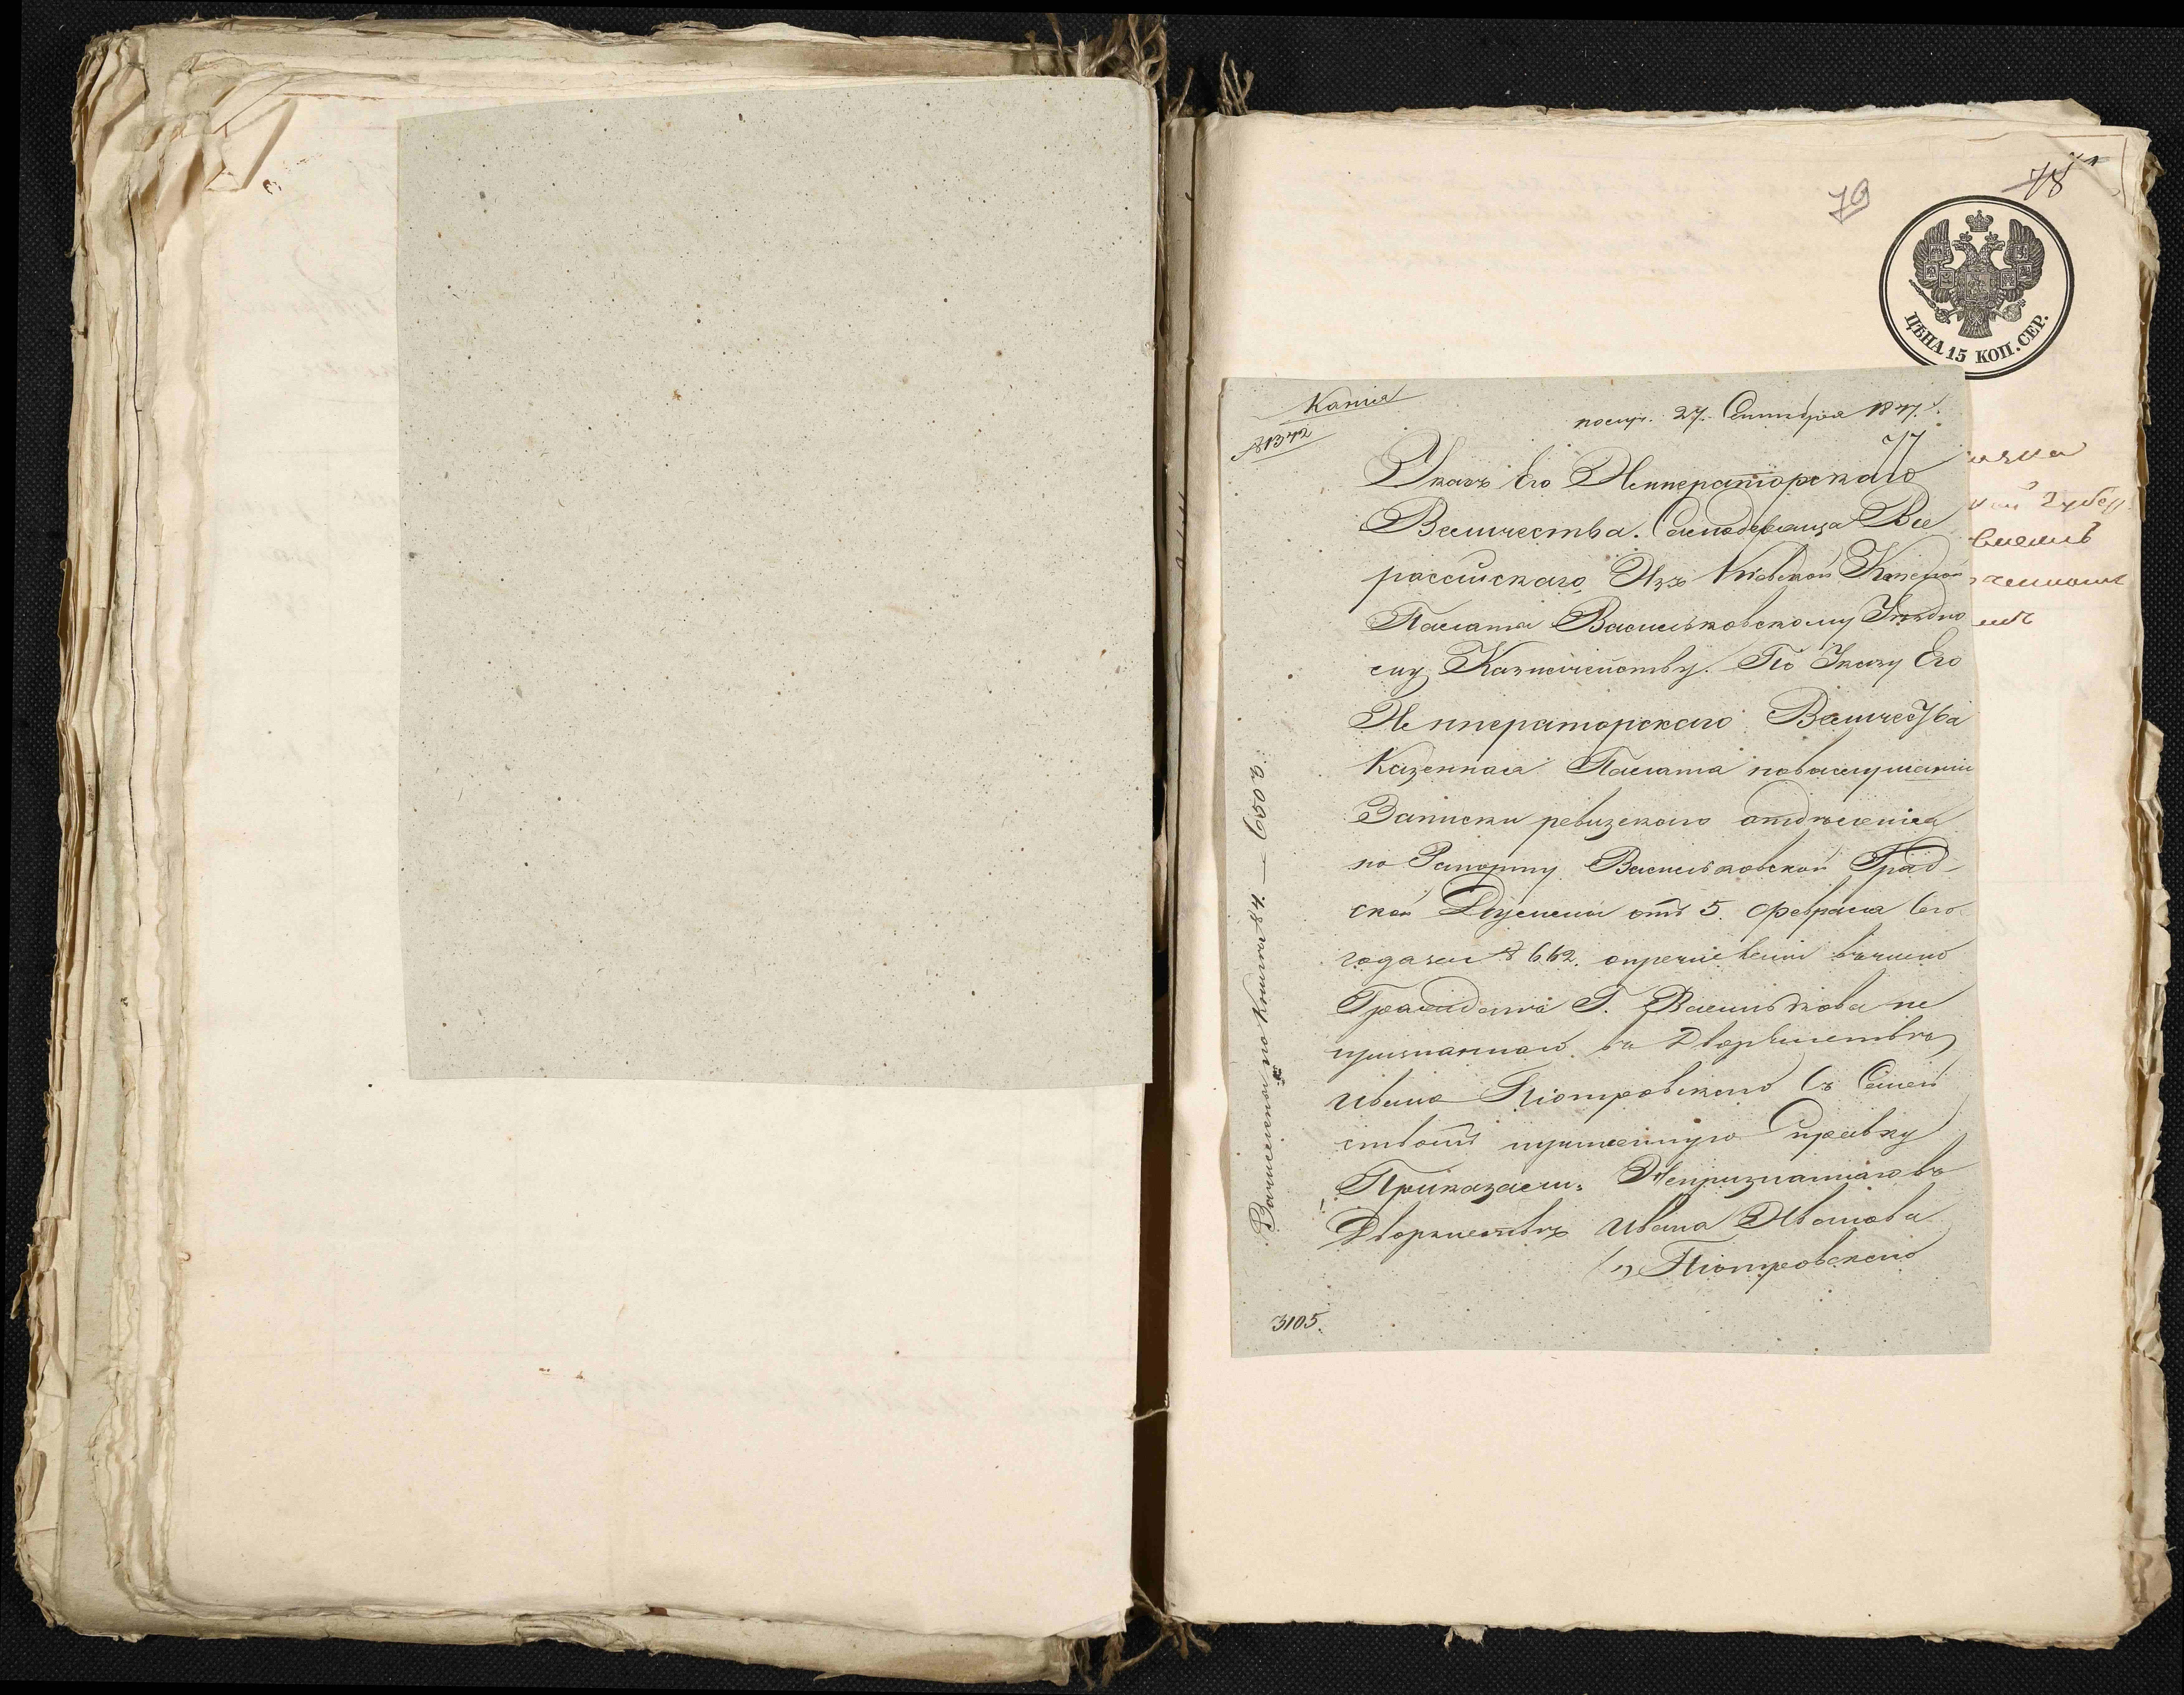 78
79
ЦѢНА 15 КОП. СЕР.
Копія
№1372
получ. 27. Сентября 1847.
77
Указъ Его Императорскаго
Величества. Самодержца Все
россійскаго, Изъ Кіевской Казенной
Палаты Васильковскому Уѣздно
му Казначейству. По Указу Его
Императорскаго Величества
Казенная Палата по выслушаніи
Записки ревизскаго отдѣленія
по Рапорту Васильковской Град-
ской Думы отъ 5. Февраля сего
года за № 662. о причисленіи въ число
Гражданъ Г. Василькова не
признаннаго въ Дворянствѣ
Ивана Піотровскаго съ Семей
ствомъ справку
Приказали: Непризнаннаго въ
Дворянствѣ Ивана Иванова
(1) Піотровскаго
Зачисленъ по книгѣ 84. — 650 з.
3105.
кой Губер